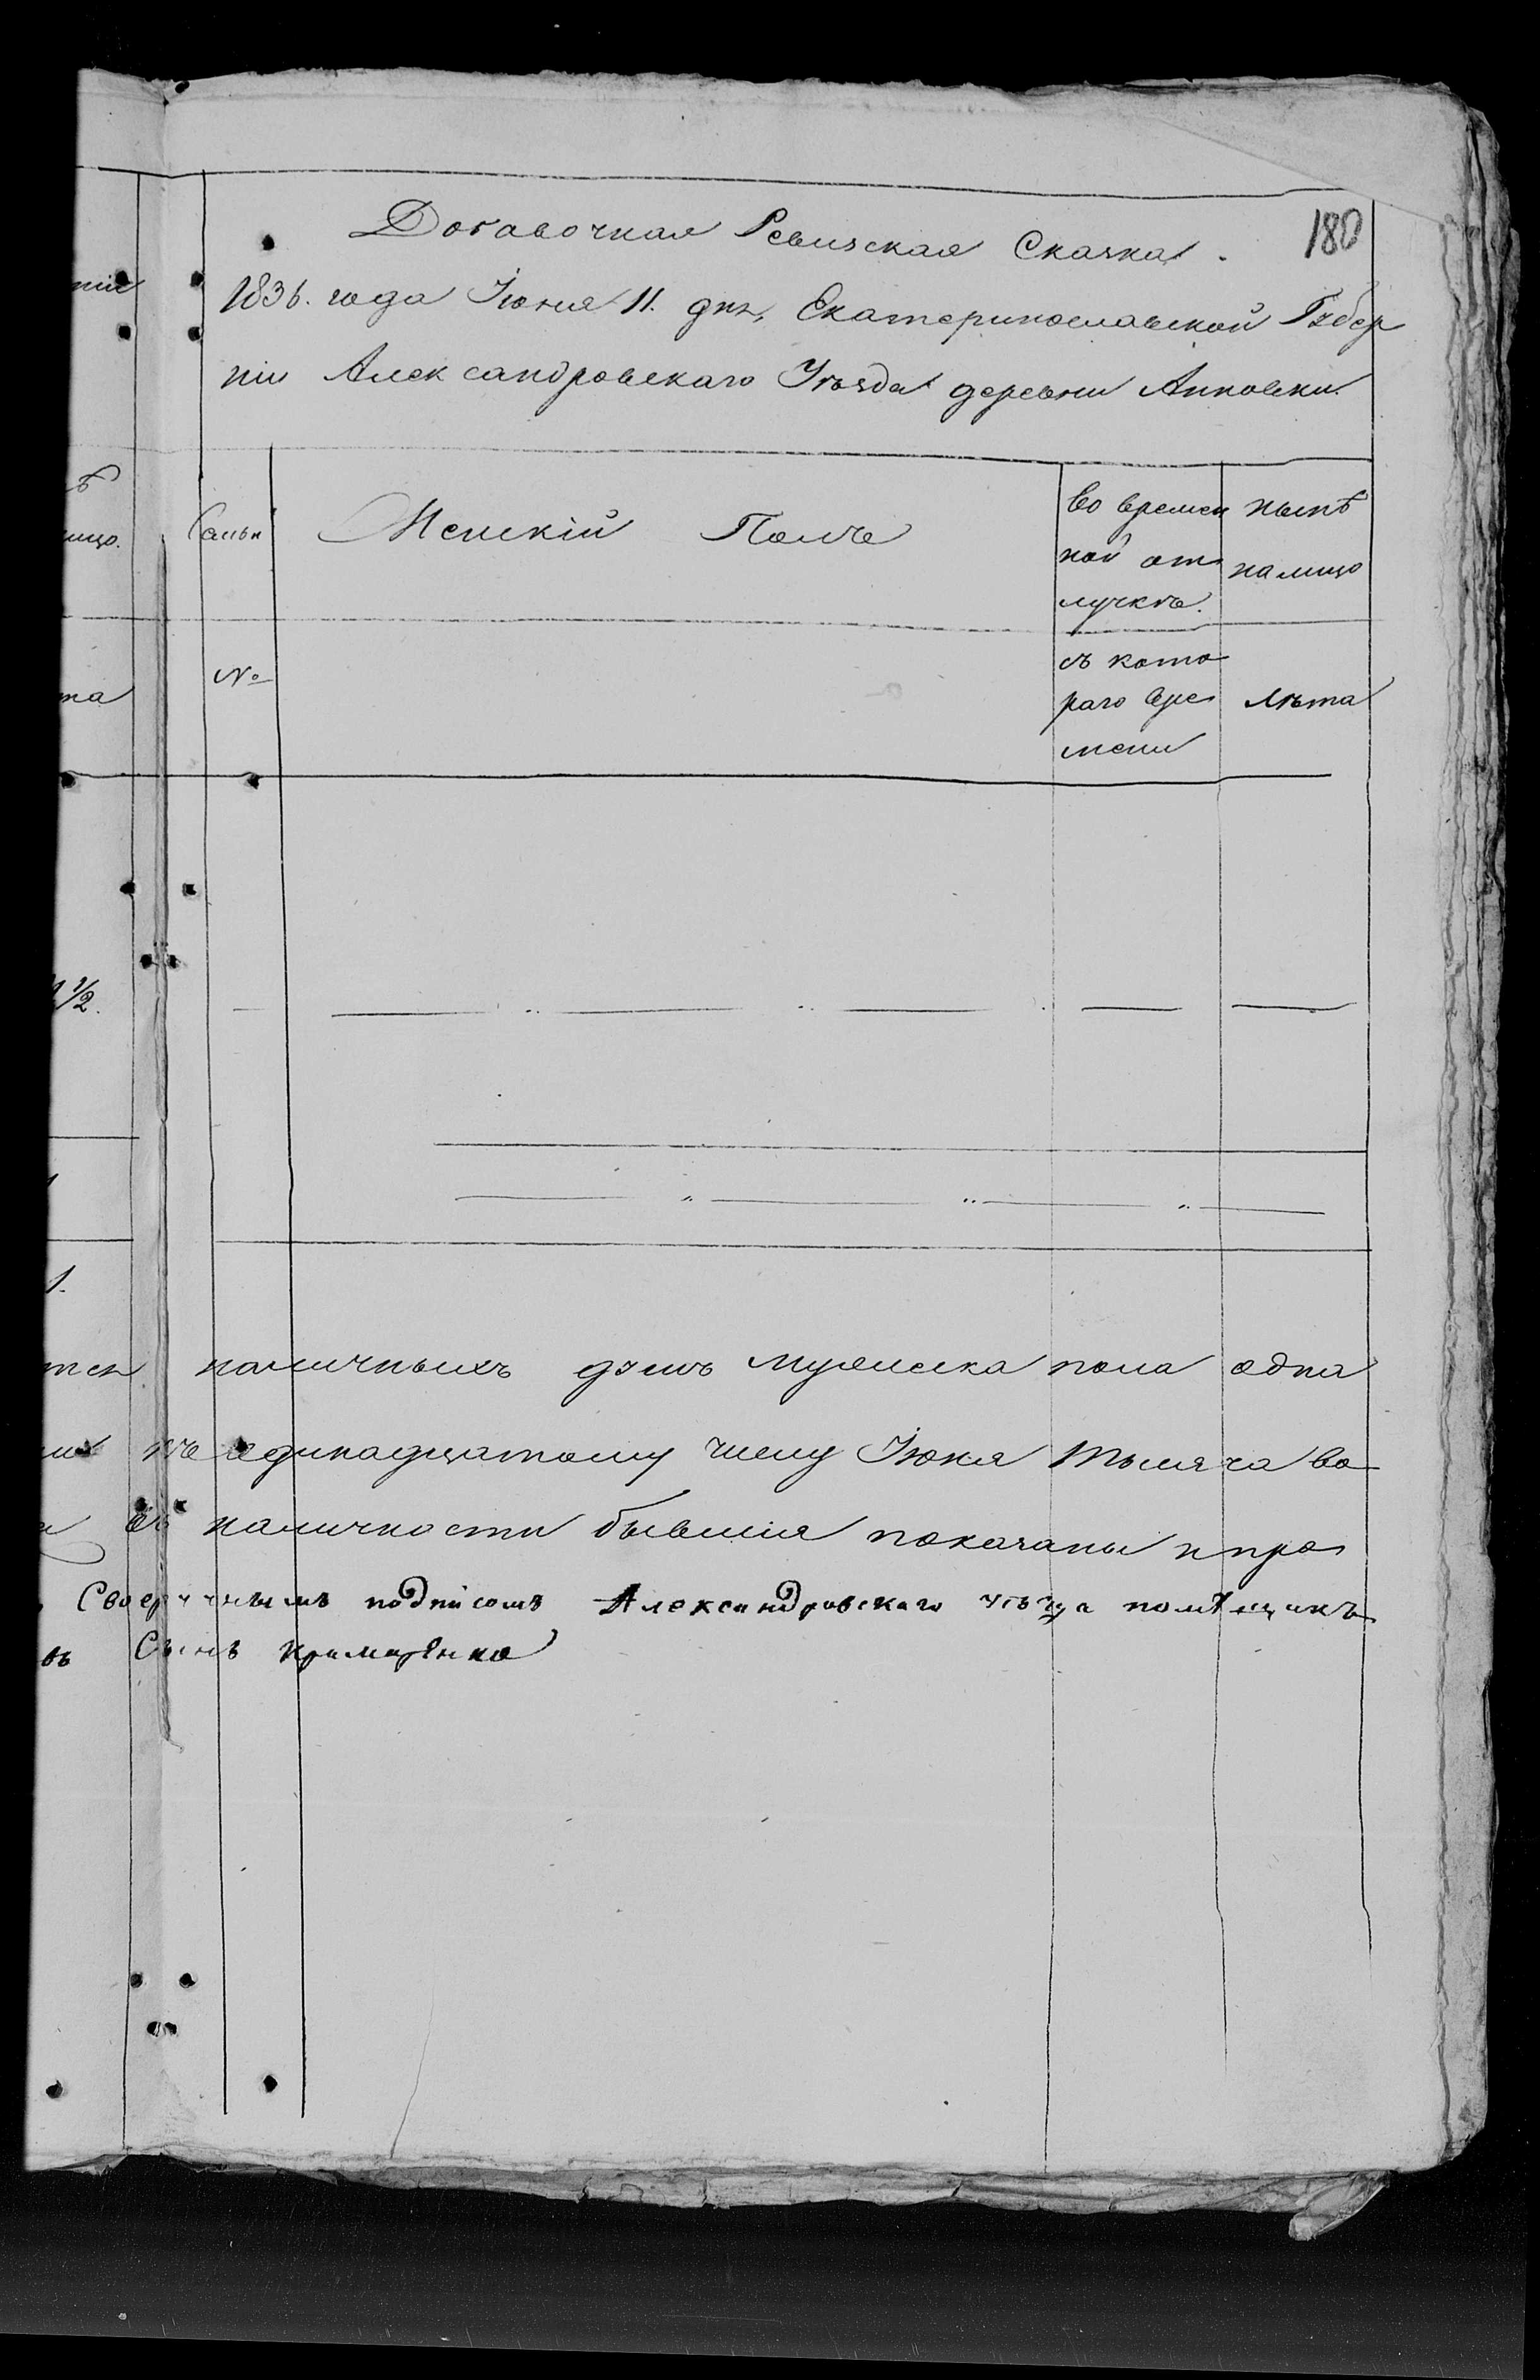 180
Добавочная Ревизская Сказка.
1836. года Іюня 11. дня, Екатеринославской Губер
ніи Александровскаго Уѣзда деревни Анновки.
Семьи
Женскій Полъ
Во времен
ной от
лучкѣ.
нынѣ
налицо
№
съ кото
раго вре
мени
Лѣта
1/2.
наличныхъ душъ мужеска пола одна
единадцатому числу Іюня тысяча во
наличности бывшия показаны и про
подписомъ Александровского уѣзда помѣщикъ
Сынъ